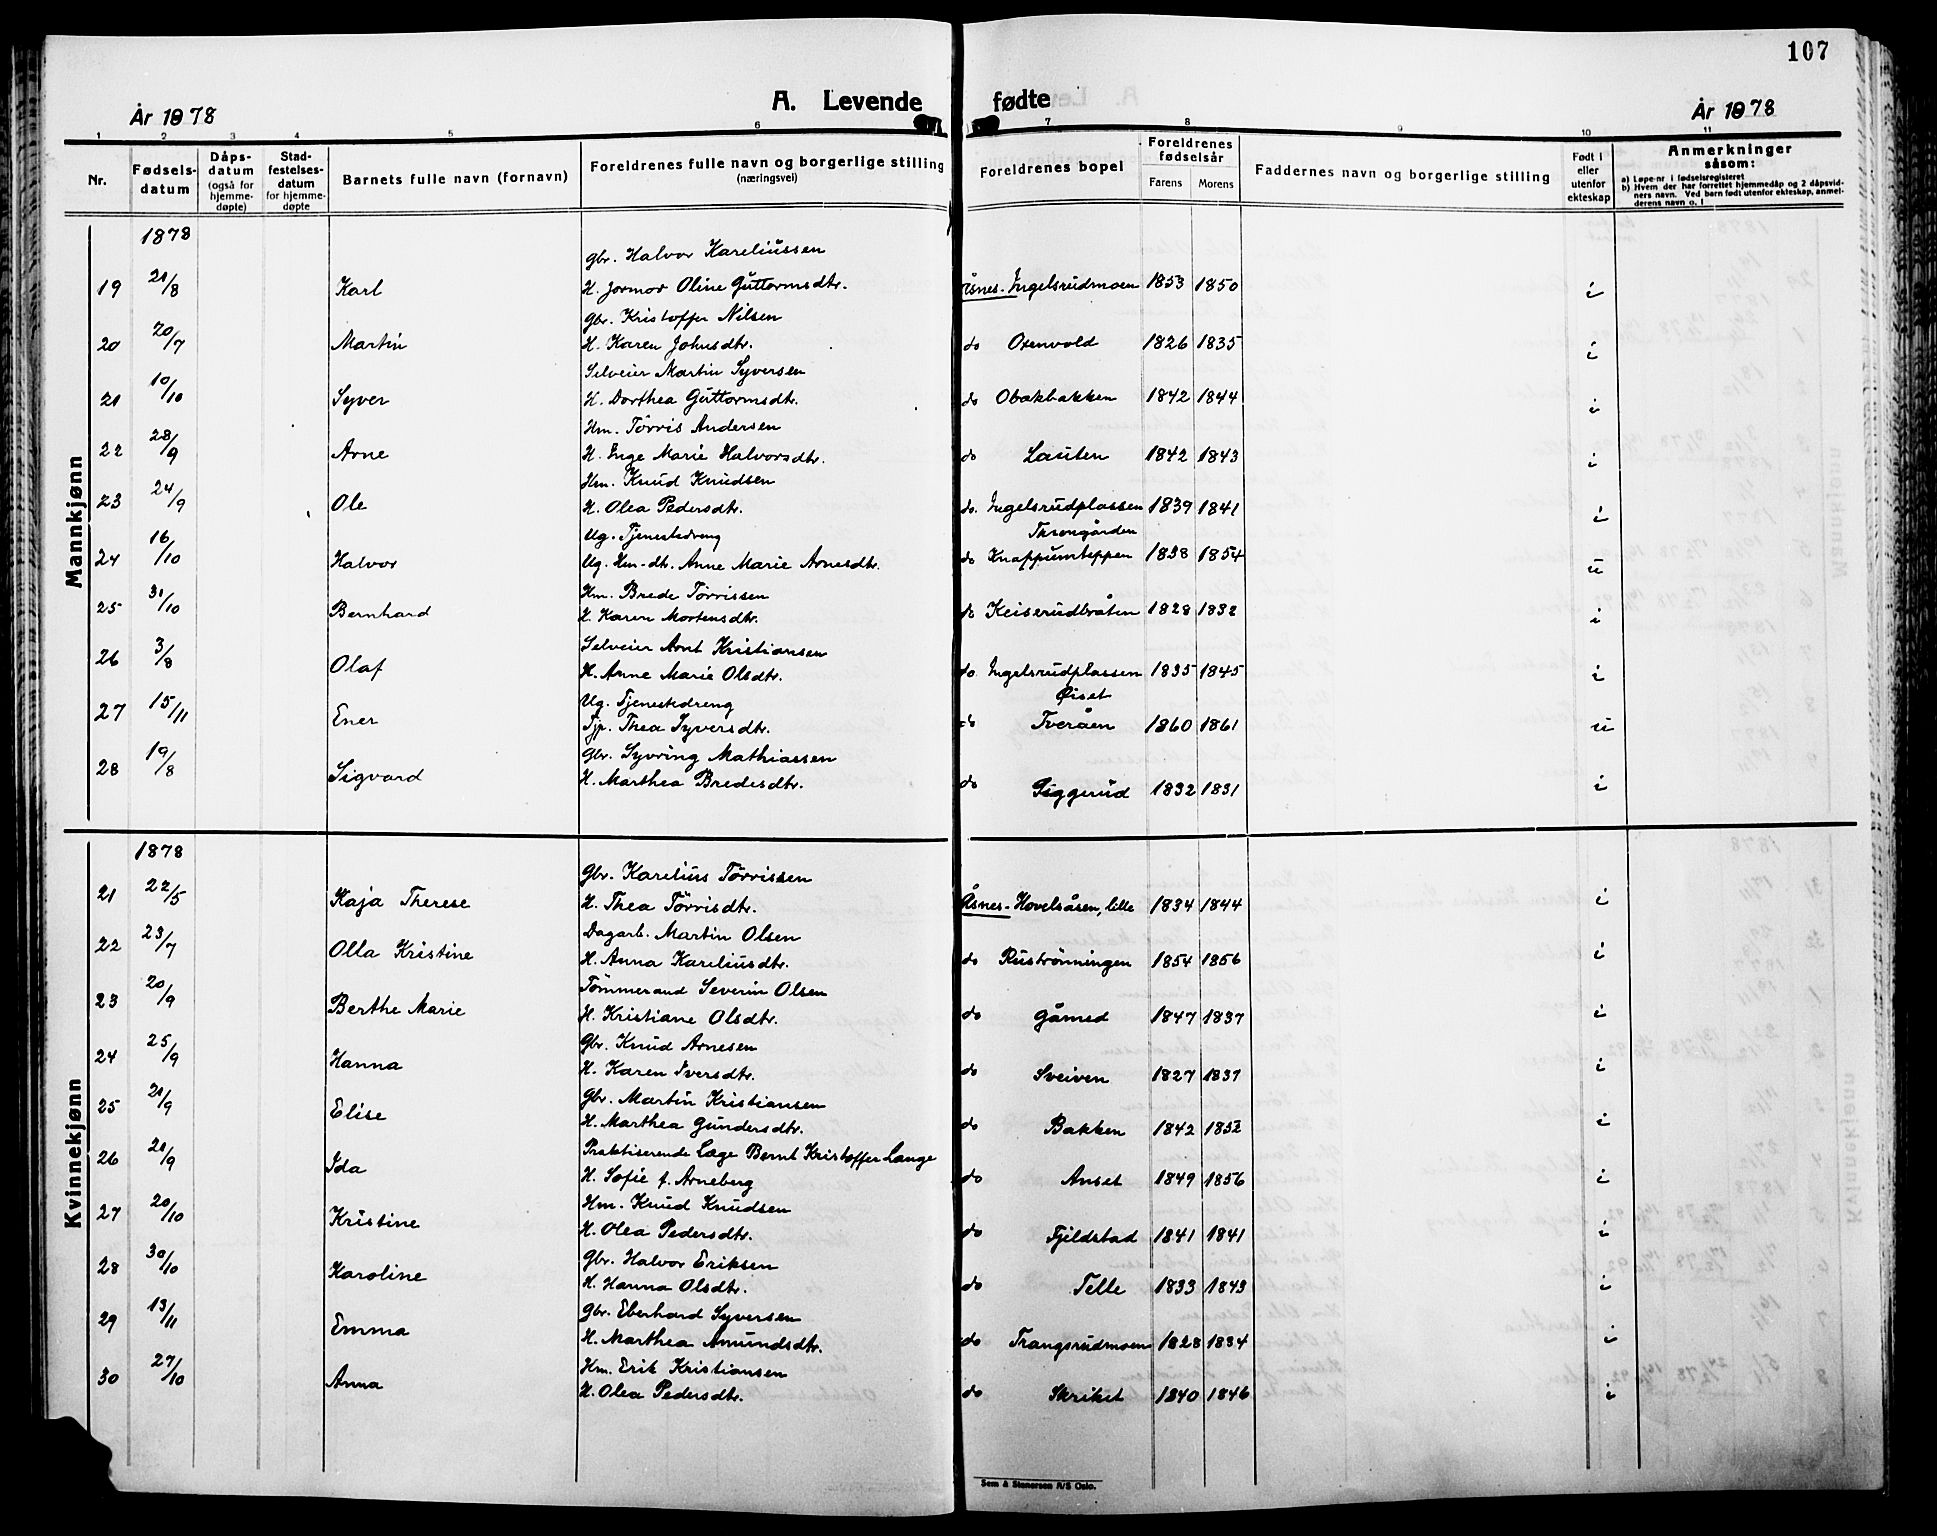 107
A. Levende fødte
År 1878
År 1878
1 2 3 4 5 6 7 8 9 10 11
Nr. Fødsels-datum Dåps-datum (også for hjemme-døpte) Stad-festelses-datum for hjemme-døpte Barnets fulle navn (fornavn) Foreldrenes fulle navn og borgerlige stilling (næringsvei) Foreldrenes bopel Foreldrenes fødselsår Farens Morens Faddernes navn og borgerlige stilling Født i eller utenfor ekteskap Anmerkninger såsom:
a) Løpe-nr i fødselsregisteret
b) Hvem der har forrettet hjemmedåp og 2 dåpsvid-
ners navn. Ved barn født utenfor ekteskap, anmel-
derens navn o. l
Mannkjønn
1878
Gbr. Halvor Kareliussen
19 21/8 Karl H. Jormor Oline Guttormsdtr. Åsnes- Ingelsrudmoen 1853 1850 i
Gbr. Kristoffer Nilsen
20 20/7 Martin H. Karen Johnsdtr. do Oxenvold 1826 1835 i
Selveier Martin Syversen
21 10/10 Syver H. Dorthea Guttormsdtr. do Obakbakken 1842 1844 i
Hm. Törris Andersen
22 28/9 Arne H. Inge Marie Halvorsdtr. do Lauten 1842 1843 i
Hm. Knud Knudsen
23 24/9 Ole H. Olea Pedersdtr. do. Ingelsrudplassen 1839 1841 i
Ug. Tjenestedreng Throngården
24 16/10 Halvor Ug. Hm-dtr. Anne Marie Arnesdtr. do Knappumteppen 1838 1854 u
Hm. Brede Törrissen
25 31/10 Bernhard H. Karen Mortensdtr. do Keiserudbråten 1828 1832 i
Selveier Arnt Kristiansen
26 3/8 Olaf H. Anne Marie Olsdtr. do. Ingelsrudplassen 1835 1845 i
Ug. Tjenestedreng Øiset
27 15/11 Ener Tjp. Thea Syversdtr. do Tveråen 1860 1861 u
Gbr. Syvring Mathiassen
28 19/8 Sigvard H. Marthea Bredesdtr. do Siggerud 1832 1831 i
Kvinnekjønn
1878
Gbr. Karelius Törrissen
21 22/5 Kaja Therese H. Thea Törrisdtr. Åsnes- Hovelsåsen, lille 1834 1844 i
Dagarb. Martin Olsen
22 23/7 Olla Kristine H. Anna Kareliusdtr. do Ruströnningen 1854 1856 i
Tömmermand Severin Olsen
23 20/9 Berthe Marie H. Kristiane Olsdtr. do Gåmed 1847 1837 i
Gbr. Knud Arnesen
24 25/9 Hanna H. Karen Iversdtr. do Sveiven 1827 1837 i
Gbr. Martin Kristiansen
25 21/9 Elise H. Marthea Gundersdtr. do Bakken 1842 1852 i
Praktiserende Læge Bernt Kristoffer Lange
26 21/9 Ida H. Sofie f. Arneberg do Anset 1849 1856 i
Hm. Knud Knudsen
27 20/10 Kristine H. Olea Pedersdtr. do Fjeldstad 1841 1841 i
Gbr. Halvor Eriksen
28 30/10 Karoline H. Hanna Olsdtr. do Telle 1833 1843 i
Gbr. Eberhard Syversen
29 13/11 Emma H. Marthea Amundsdtr. do Trangsrudmoen 1828 1834 i
Hm. Erik Kristiansen
30 27/10 Anna H. Olea Pedersdtr. do Skriket 1840 1846 i
Sem & Stenersen A/S Oslo.